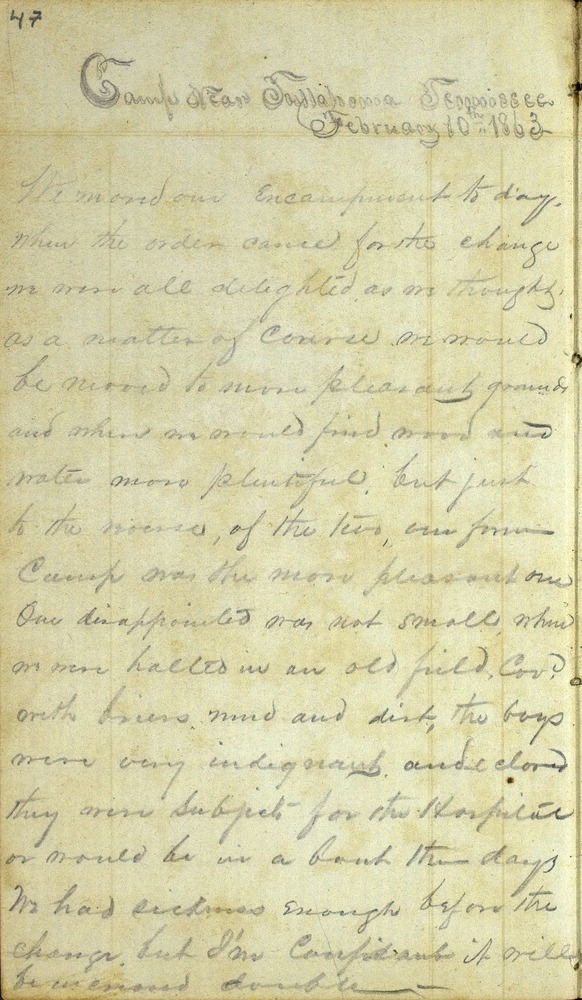 47
Camp Near Tullahoma Tennessee
February 10th 1863
We moved our Encampment to day.
when the order came for the change
we were all delighted as we thought,
as a matter of course we would
be moved to more pleasant grounds
and where we would find wood and
water more plentiful, but just
to the reverse, of the two, our former
Camp was the more pleasant one
Our disappointed was not small, when
we were halted in an old field, Covd
with briers, mud and dirt, the boys
were very indignant, and eclared
they were Subjects for the Hospital
or would be in a bout three days
We had sickness enough before the
change, but I'm Confidant it will
be increased double